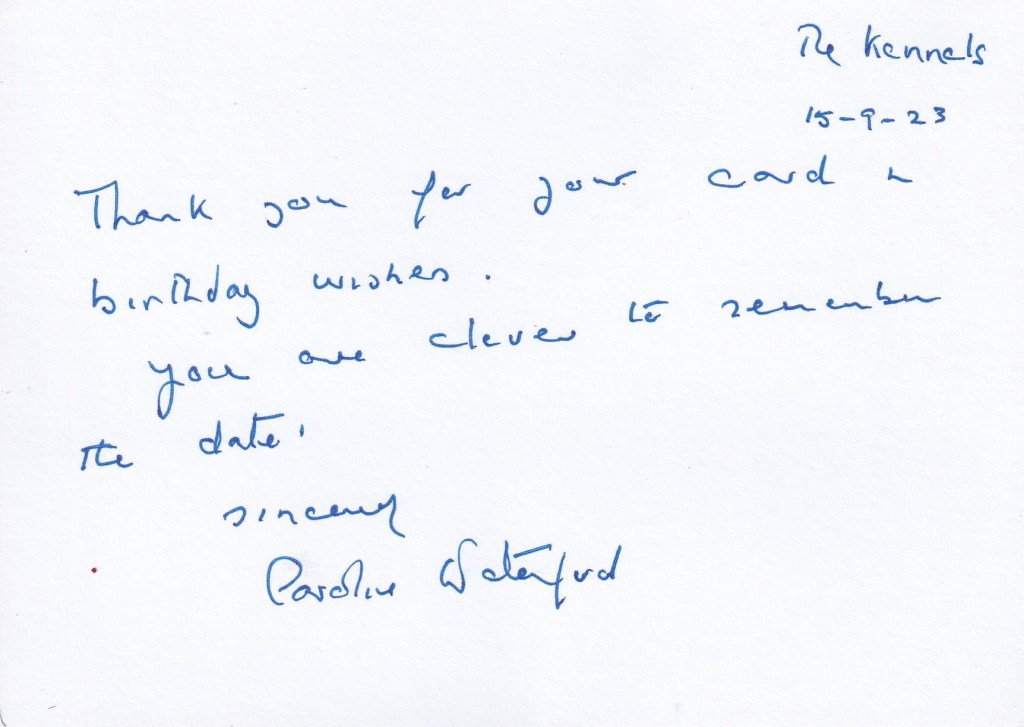 The Kennels
15-9-23
Thank you for your card &
birthday wishes.
You are clever to remember
the date!
Sincerely
Caroline Waterford